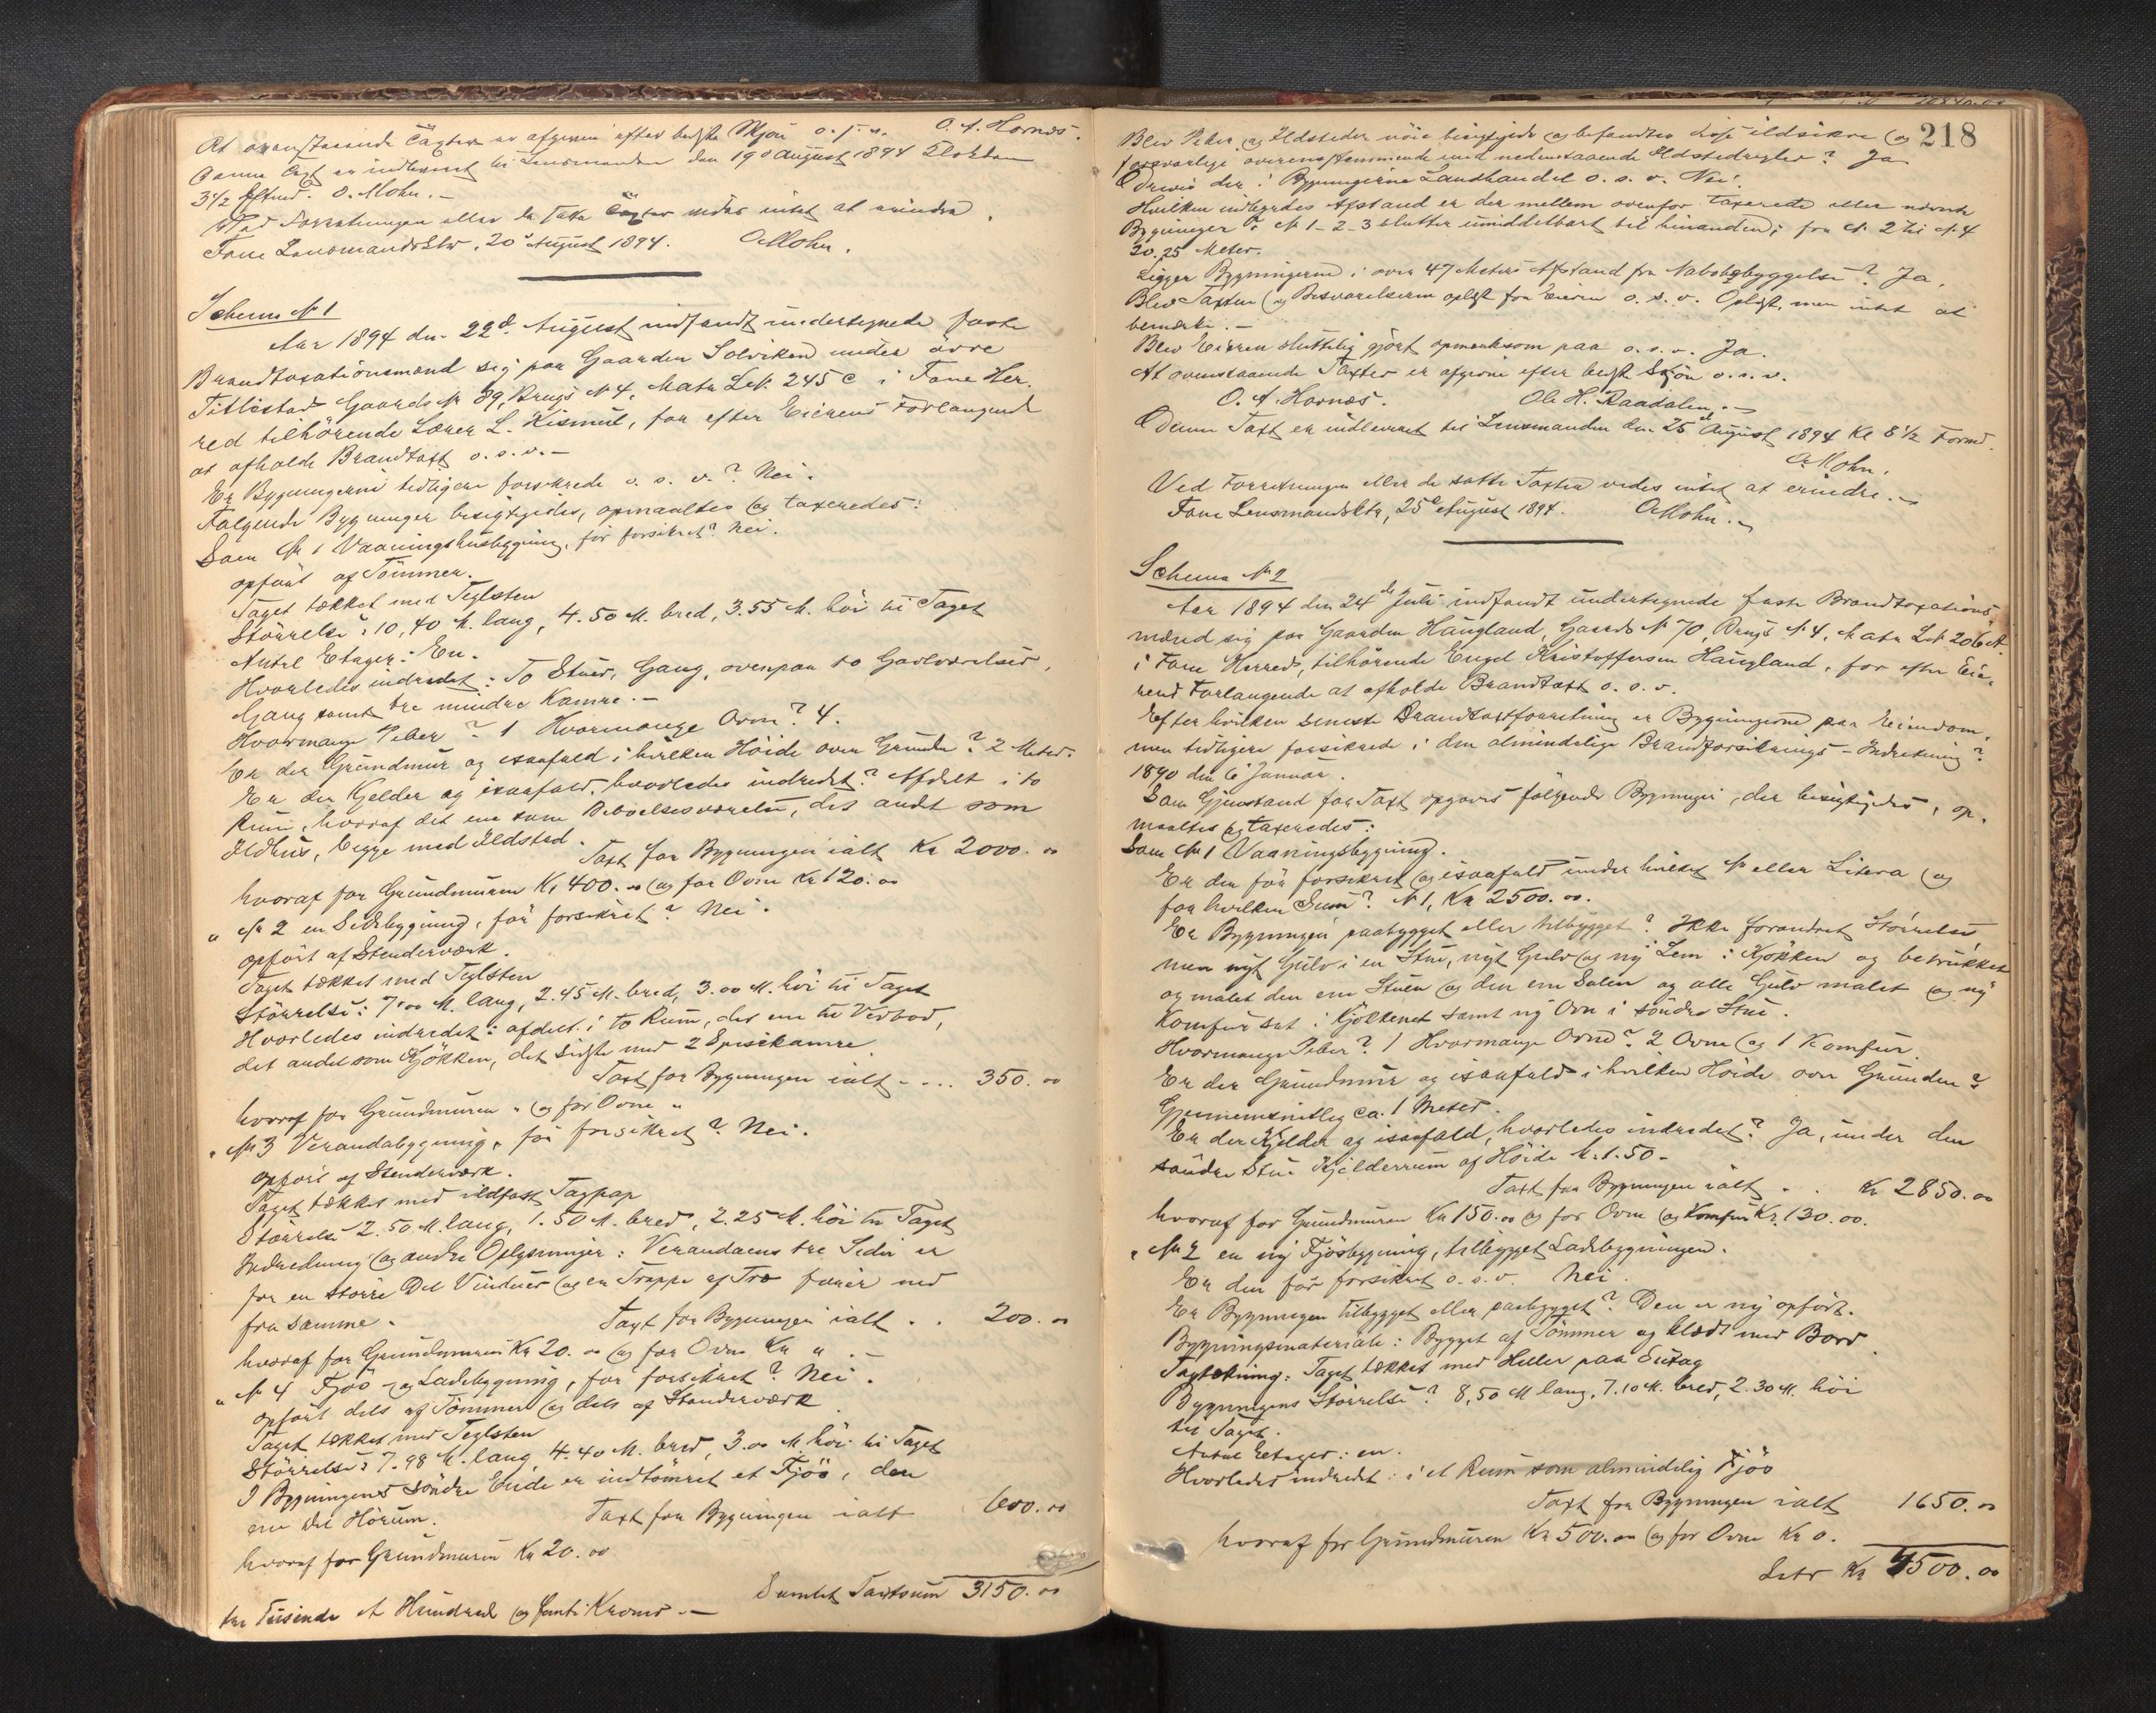 At ovenstaaende Taxter er afgiven efter bedste Skjön o. s. v. O. A. Hornæs.
Denne Taxt er indleveret til Lensmanden den 19de August 1894 Klokken
3 1/2 Eftmd. O. Mohn. -
Ved Forretningen eller de satte Taxter vides intet at erindre.
Fane Lensmandsktr, 20de August 1894. O. Mohn.
Schema № 1
Aar 1894 den 22d. August indfandt undertegnede faste
Brandtaxationsmænd sig paa Gaarden Solviken under övre
Titlestad Gaards № 89, Brugs № 4, Matr. L№ 245 c i Fane Her-
red tilhörende Lærer L. Kismul, for efter Eierens Forlangende
at afholde Brandtaxt o. s. v. -
Er Bygningerne tidligere forsikrede o. s. v.? Nei.
Fölgende Bygninger besigtigedes, opmaaltes og taxeredes:
Som № 1 Vaaningshusbygning, för forsikret? Nei.
opfört af Tömmer.
Taget tækket med Teglsten
Störrelse: 10,40 M. lang, 4.50 M. bred, 3.55 M. höi til Taget
Antal Etager: En.
Hvorledes indredet: To Stuer, Gang, ovenpaa to Gavlværelser,
Gang samt tre mindre Kamre. -
Hvormange Piber? 1 Hvormange Ovne? 4.
Er der Grundmur og isaafald i hvilken Höide over Grunden? 2 Meter.
Er der Kjelder og isaafald, hvorledes indredet? Afdelt i to
Rum, hvoraf det ene som Beboelsesværelse, det andet som
Ildhus, begge med Ildsted.
Taxt for Bygningen ialt Kr 2000. 00
hvoraf for Grundmuren Kr 400. 00 og for Ovne Kr 120. 00
" № 2 en Sidebygning, för forsikret? Nei.
opfört af Stenderværk.
Taget tækket med Teglsten
Störrelse: 7.00 M. lang, 2.45 M. bred, 3.00 M. höi til Taget
Hvorledes indredet: afdelt i to Rum, det ene til Vedbod,
det andet som Kjökken, det sidste med 2 Spisekamre
Taxt for Bygningen ialt - ... 350. 00
hvoraf for Grundmuren " og for Ovne "
" № 3 Verandabygning, för forsikret? Nei.
opfört af Stenderværk.
Taget tækket med ildfast Tagpap
Störrelse 2.50 M. lang, 1.50 M. bred, 2.25 M. höi til Taget
Indredning og andre Oplysninger: Verandaens tre Sider er
for en större Del Vinduer og en Trappe af Træ förer ned
fra samme.
Taxt for Bygningen ialt . . 200. 00
hvoraf for Grundmuren Kr 20. 00 og for Ovne Kr " . -
" № 4 Fjös- og Ladebygning, för forsikret? Nei.
opfört dels af Tömmer og dels af Stenderværk
Taget tækket med Teglsten
Störrelse: 7.98 M. lang, 4.40 M. bred, 3.00 M höi til Taget
I Bygningens söndre Ende er indtömret et Fjös, den
Taxt for Bygningen ialt 600. 00
hvoraf for Grundmuren Kr 20. 00
Samlet Taxtsum 3150. 00
tre Tusinde et Hundrede og femti Kroner. -
218
Blev Piber og Ildsteder nöie besigtigede og befandtes disse ildsikre og
forsvarlige overensstemmende med nedenstaaende Ildstedregler? Ja
Drives der i Bygningerne Landhandel o. s. v. Nei.
Hvilken indbyrdes Afstand er der mellem ovenfor taxerede eller nævnte
Bygninger? № 1-2-3 slutter umiddelbart til hinanden; fra № 2 til № 4
20,25 Meter.
Ligger Bygningerne i over 47 Meters Afstand fra Nabobebyggelse? Ja.
Blev Taxten og Besvarelserne oplæst for Eieren o. s. v. Oplæst, men intet at
bemærke. -
Blev Eieren sluttelig gjört opmerksom paa o. s. v. Ja.
At ovenstaaende Taxter er afgivne efter bedste Skjön o. s. v.
O. A. Hornæs. Ole H. Raadalen. -
Denne Taxt er indleveret til Lensmanden den 25d August 1894 Kl 8 1/2 Formd.
O. Mohn.
Ved Forretningen eller de satte Taxter vides intet at erindre. -
Fane Lensmandsktr, 25de August 1894. O. Mohn. -
Schema № 2
Aar 1894 den 24de Juli indfandt undertegnede faste Brandtaxations-
mænd sig paa Gaarden Haugland, Gaards № 70, Brugs № 4, Matr L№ 206 A
i Fane Herred, tilhörende Engel Kristoffersen Haugland, for efter Eie-
rens Forlangende at afholde Brandtaxt o. s. v.
Efter hvilken seneste Brandtaxtforretning er Bygningerne paa Eiendom-
men tidligere forsikrede i den almindelige Brandforsikrings-Indretning?
1890 den 6 Januar.
Som Gjenstand for Taxt opgaves fölgende Bygninger, der besigtigedes, op-
maaltes og taxeredes:
Som № 1 Vaaningsbygning.
Er den för forsikret og isaafald under hvilket № eller Litera og
for hvilken Sum? № 1, Kr 2500. 00.
Er Bygningen paabygget eller tilbygget? Ikke forandret Störrelse,
men nyt Gulv i en Stue, nyt Gulv og ny Lem i Kjökken og betrukket
og malet den ene Stuen og den ene Salen og alle Gulv malet og ny
Komfur sat i Kjökkenet samt ny Ovn i söndre Stue.
Hvormange Piber? 1 Hvormange Ovne? 2 Ovne og 1 Komfur.
Er der Grundmur og isaafald i hvilken Höide over Grunden?
Gjennemsnitlig ca. 1 Meter.
Er der Kjelder og isaafald, hvorledes indredet? Ja, under den
söndre Stue Kjelderrum af Höide M. 1.50 -
Taxt for Bygningen ialt . . Kr 2850. 00
hvoraf for Grundmuren Kr 150. 00 og for Ovne og Komfur Kr. 130. 00.
" № 2 en ny Fjösbygning, tilbygget Ladebygningen.
Er den för forsikret o. s. v. Nei.
Er Bygningen tilbygget eller paabygget? Den er ny opfört.
Bygningsmateriale: Bygget af Tömmer og klædt med Bord.
Tagtækning: Taget tækket med Heller paa Sutag
Bygningens Störrelse? 8,50 M lang, 7.10 M. bred, 2.30 M. höi
til Taget.
Antal Etager: en.
Hvorledes indredet: i et Rum som almindelig Fjös
Taxt for Bygningen ialt 1650. 00
hvoraf for Grundmuren Kr 500. 00 og for Ovne Kr 0.
Kr 4500. 00